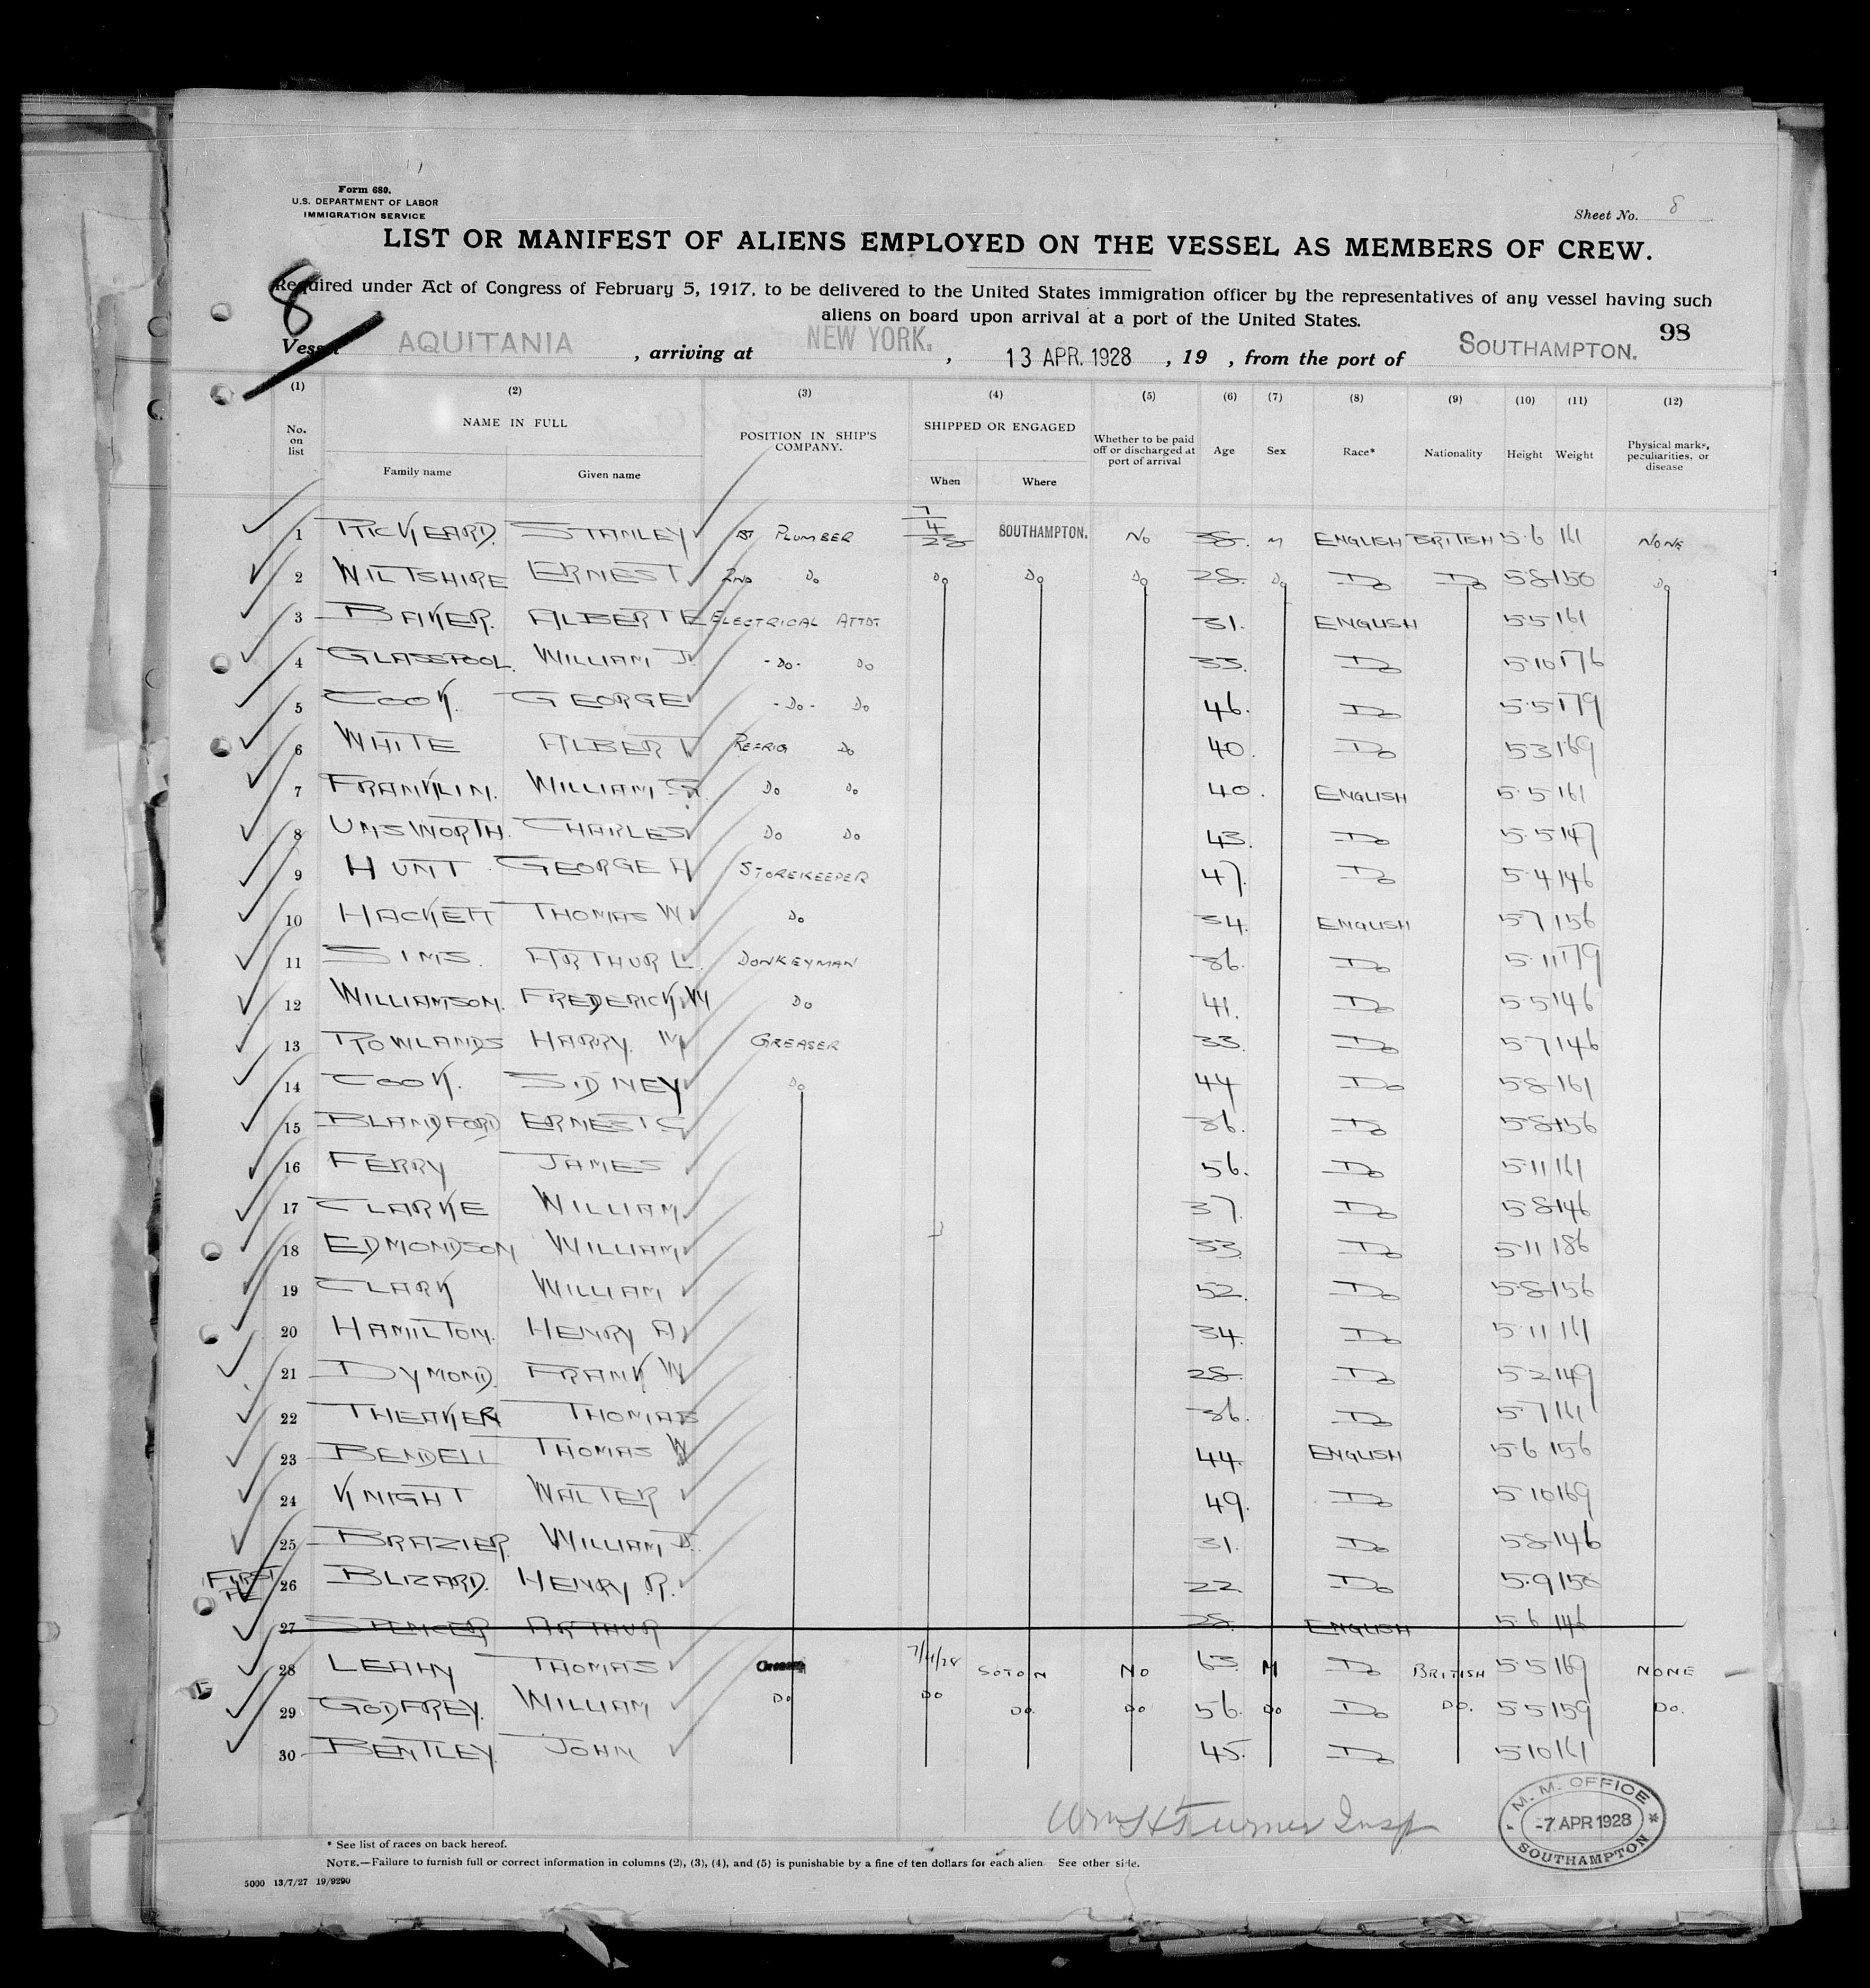 Form 680.
U.S. DEPARTMENT OF LABOR
IMMIGRATION SERVICE
Sheet No. 8
LIST OR MANIFEST OF ALIENS EMPLOYED ON THE VESSEL AS MEMBERS OF CREW.
8
Required under Act of Congress of February 5, 1917, to be delivered to the United States immigration officer by the representatives of any vessel having such
aliens on board upon arrival at a port of the United States.
98
Vessel AQUITANIA , arriving at NEW YORK. , 13 APR. 1928 , 19 , from the port of SOUTHAMPTON.
(1) (2) (3) (4) (5) (6) (7) (8) (9) (10) (11) (12)
No. on list NAME IN FULL Family name Given name POSITION IN SHIP'S COMPANY. SHIPPED OR ENGAGED When Where Whether to be paid off or discharged at port of arrival Age Sex Race* Nationality Height Weight Physical marks, peculiarities, or disease
1 RICKEARD. STANLEY 1ST PLUMBER 7/4/28 SOUTHAMPTON. NO 38. M ENGLISH BRITISH 5.6 161 NONE
2 WILTSHIRE ERNEST 2ND DO DO DO DO 28. DO DO DO 5.8 150 DO
3 BAKER. ALBERT E ELECTRICAL ATTDT 31. ENGLISH 5.5 161
4 GLASSPOOL. WILLIAM J. -DO- DO 33. DO 5.10 176
5 COOK. GEORGE -DO- DO 46. DO 5.5 179
6 WHITE ALBERT REFRIG DO 40. DO 5.3 169
7 FRANKLIN. WILLIAM G. DO DO 40. ENGLISH 5.5 161
8 UNSWORTH. CHARLES DO DO 43. DO 5.5 147
9 HUNT GEORGE H STOREKEEPER 47. DO 5.4 146
10 HACKETT THOMAS W DO 34. ENGLISH 5.7 156
11 SIMS. ARTHUR L. DONKEYMAN 36. DO 5.11 179
12 WILLIAMSON. FREDERICK W DO 41. DO 5.5 146
13 ROWLANDS HARRY. GREASER 33. DO 5.7 146
14 COOK. SIDNEY DO 44 DO 5.8 161
15 BLANDFORD ERNEST G 36. DO 5.8 156
16 FERRY JAMES 56. DO 5.11 161
17 CLARKE WILLIAM 37. DO 5.8 146
18 EDMONDSON WILLIAM 33. DO 5.11 186
19 CLARK WILLIAM 52. DO 5.8 156
20 HAMILTON. HENRY A 34. DO 5.11 161
21 DYMOND. FRANK W 28. DO 5.2 149
22 THEAKER THOMAS 36. DO 5.7 161
23 BENDELL THOMAS W 44. ENGLISH 5.6 156
24 KNIGHT WALTER 49. DO 5.10 169
25 BRAZIER. WILLIAM J. 31. DO 5.8 146
FIRST
26 BLIZARD. HENRY R. 22 DO 5.9 158
27 SPENCER ARTHUR 28. ENGLISH 5.6 146
28 LEAHY THOMAS Greaser 7/4/28 SOTON NO 63. M DO BRITISH 5.5 169 NONE
29 GODFREY. WILLIAM DO DO DO DO 56. DO DO DO. 5.5 159 DO.
30 BENTLEY. JOHN 45. DO 5.10 161
Wm H Turner Insp
M. M. OFFICE
-7 APR 1928
SOUTHAMPTON
* See list of races on back hereof.
NOTE.—Failure to furnish full or correct information in columns (2), (3), (4), and (5) is punishable by a fine of ten dollars for each alien See other side.
5000 13/7/27 19/9290